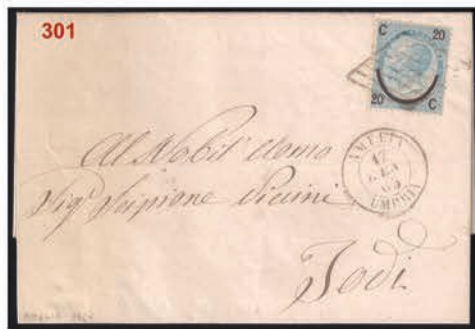 301
C 20
20 C
AMELIA
17
UMBRIA
Al Nobil Uomo
Sig.r Scipione
Todi